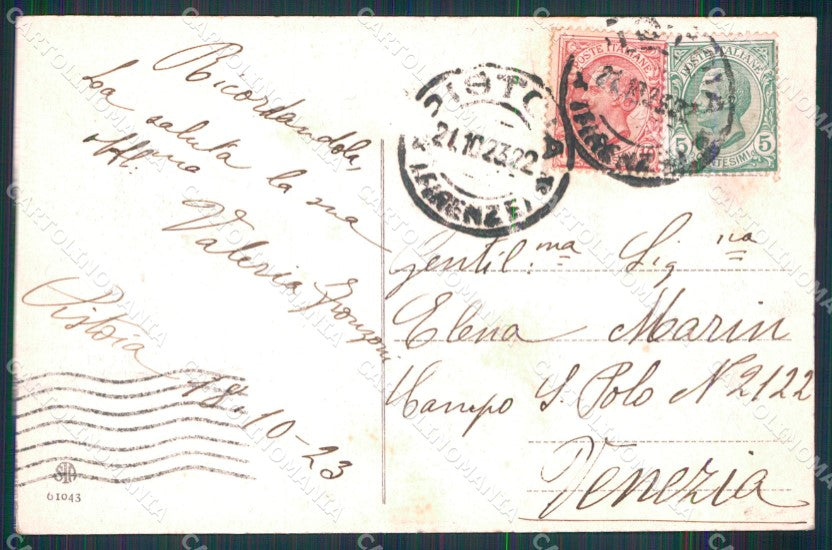 Ricordandola,
La saluta la sua
Aff. ma
Valeria Fronzoni
Pistoia 18-10-23
61043
PISTOIA
21.10.23.22
(FIRENZE)
POSTE ITALIANE
POSTE ITALIANE
5 CENTESIMI 5
Gentil.ma Sig.na
Elena Marin
Campo S. Polo N 2122
Venezia
CARTOLINOMANIA